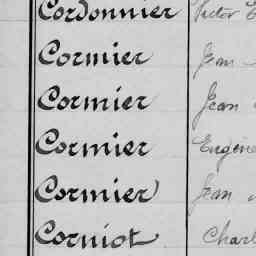 Cordonnier Victor
Cormier Jean
Cormier Jean
Cormier Eugène
Cormier Jean
Corniot Charl